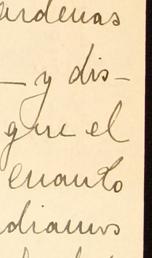 ardenas
— y dis-
que el
cuanto
diamos